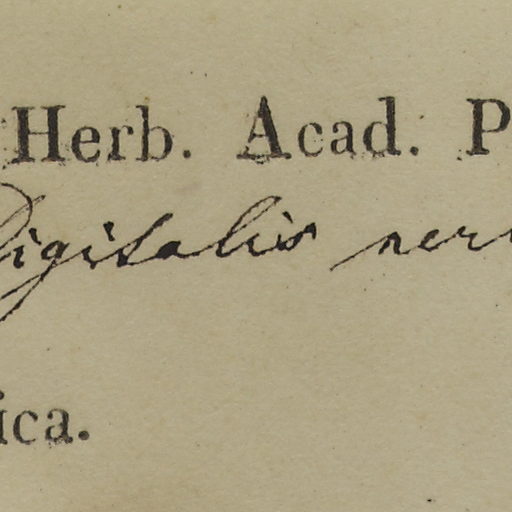 Herb. Acad. P
Digitalis ner
ica.